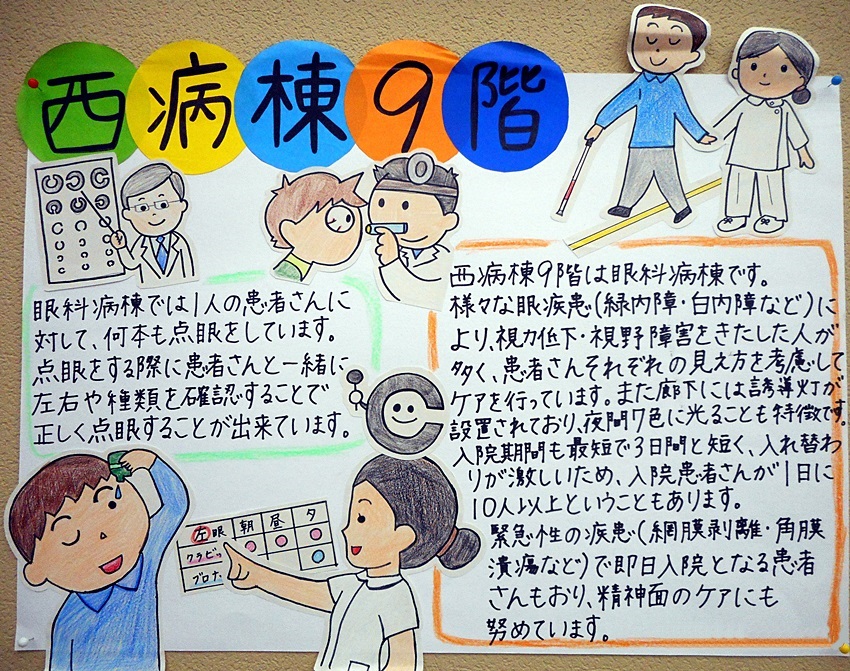 西病棟9階
眼科病棟では1人の患者さんに
対して、何本も点眼をしています。
点眼をする際に患者さんと一緒に
左右や種類を確認することで
正しく点眼することが出来ています。
西病棟9階は眼科病棟です。
様々な眼疾患(緑内障・白内障など)に
より、視力低下・視野障害をきたした人が
多く、患者さんそれぞれの見え方を考慮して
ケアを行っています。また廊下には誘導灯が
設置されており、夜間7色に光ることも特徴です。
入院期間も最短で3日間と短く、入れ替わ
りが激しいため、入院患者さんが1日に
10人以上ということもあります。
緊急性の疾患(網膜剥離・角膜
潰瘍など)で即日入院となる患者
さんもおり、精神面のケアにも
努めています。
左眼 朝 昼 夕
クラビッ
ブロナ